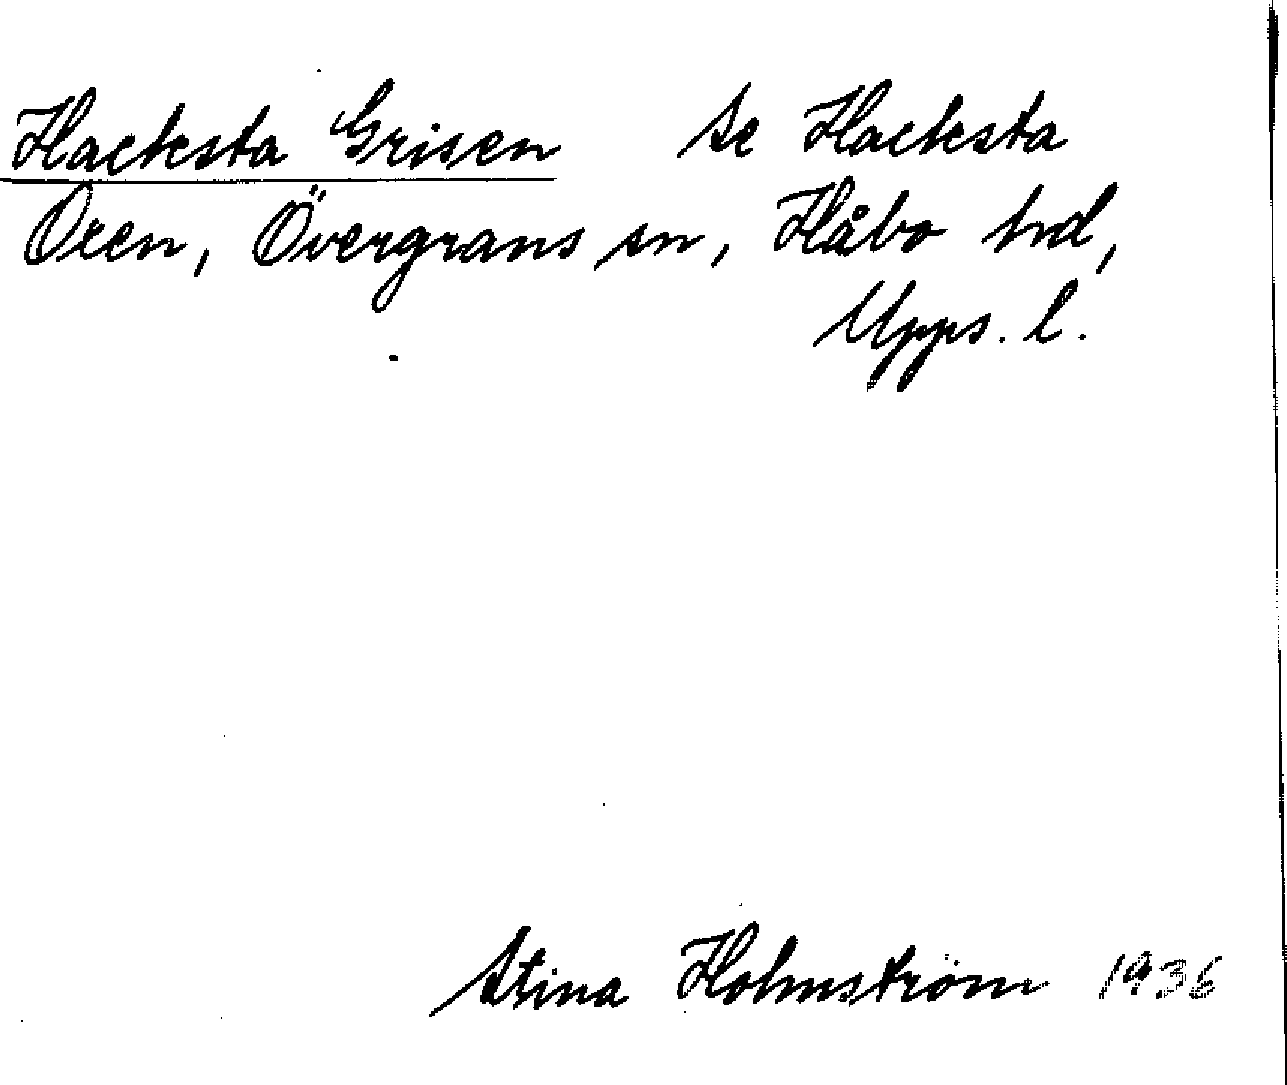 Hacksta Grisen se Hacksta
Oxen, Övergrans sn, Håbo hd,
Upps. l.
Stina Holmström 1936